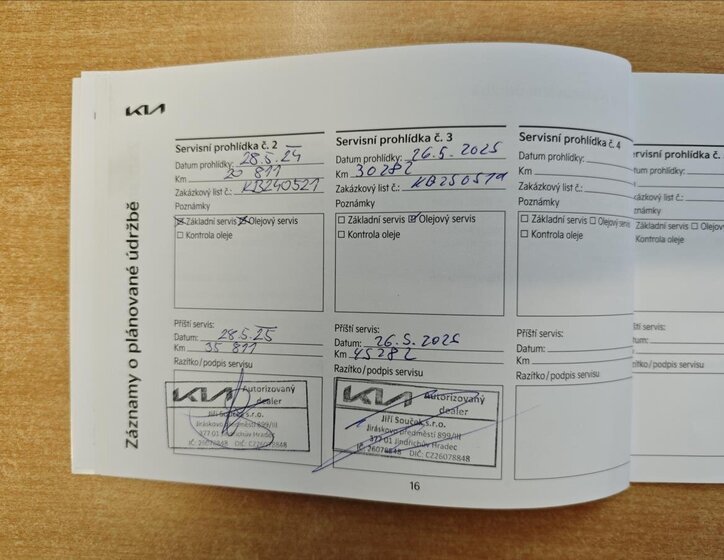 KIA
Záznamy o plánované údržbě
Servisní prohlídka č. 2
Datum prohlídky: 28.5.24
Km 20 811
Zakázkový list č.: KB240521
Poznámky
Základní servis Olejový servis
Kontrola oleje
Příští servis:
Datum: 28.5.25
Km 35 811
Razítko/podpis servisu
KIA Autorizovaný
dealer
Jiří Souček s.r.o.
Jiráskovo předměstí 899/III
377 01 Jindřichův Hradec
IČ: 26078848 DIČ: CZ26078848
Servisní prohlídka č. 3
Datum prohlídky: 26.5.2025
Km 30282
Zakázkový list č.:
Poznámky
Základní servis Olejový servis
Kontrola oleje
Příští servis:
Datum: 26.5.2026
Km 45282
Razítko/podpis servisu
KIA Autorizovaný
dealer
Jiří Souček s.r.o.
Jiráskovo předměstí 899/III
377 01 Jindřichův Hradec
IČ: 26078848 DIČ: CZ26078848
Servisní prohlídka č. 4
Datum prohlídky:
Km
Zakázkový list č.:
Poznámky
Základní servis Olejový servis
Kontrola oleje
Příští servis:
Datum:
Km
Razítko/podpis servisu
16
ervisní prohlídka č.
atum prohlídky:
m
akázkový list č.:
oznámky
Základní servis
Kontrola oleje
říští servis:
atum:
m
azítko/podpis servisu